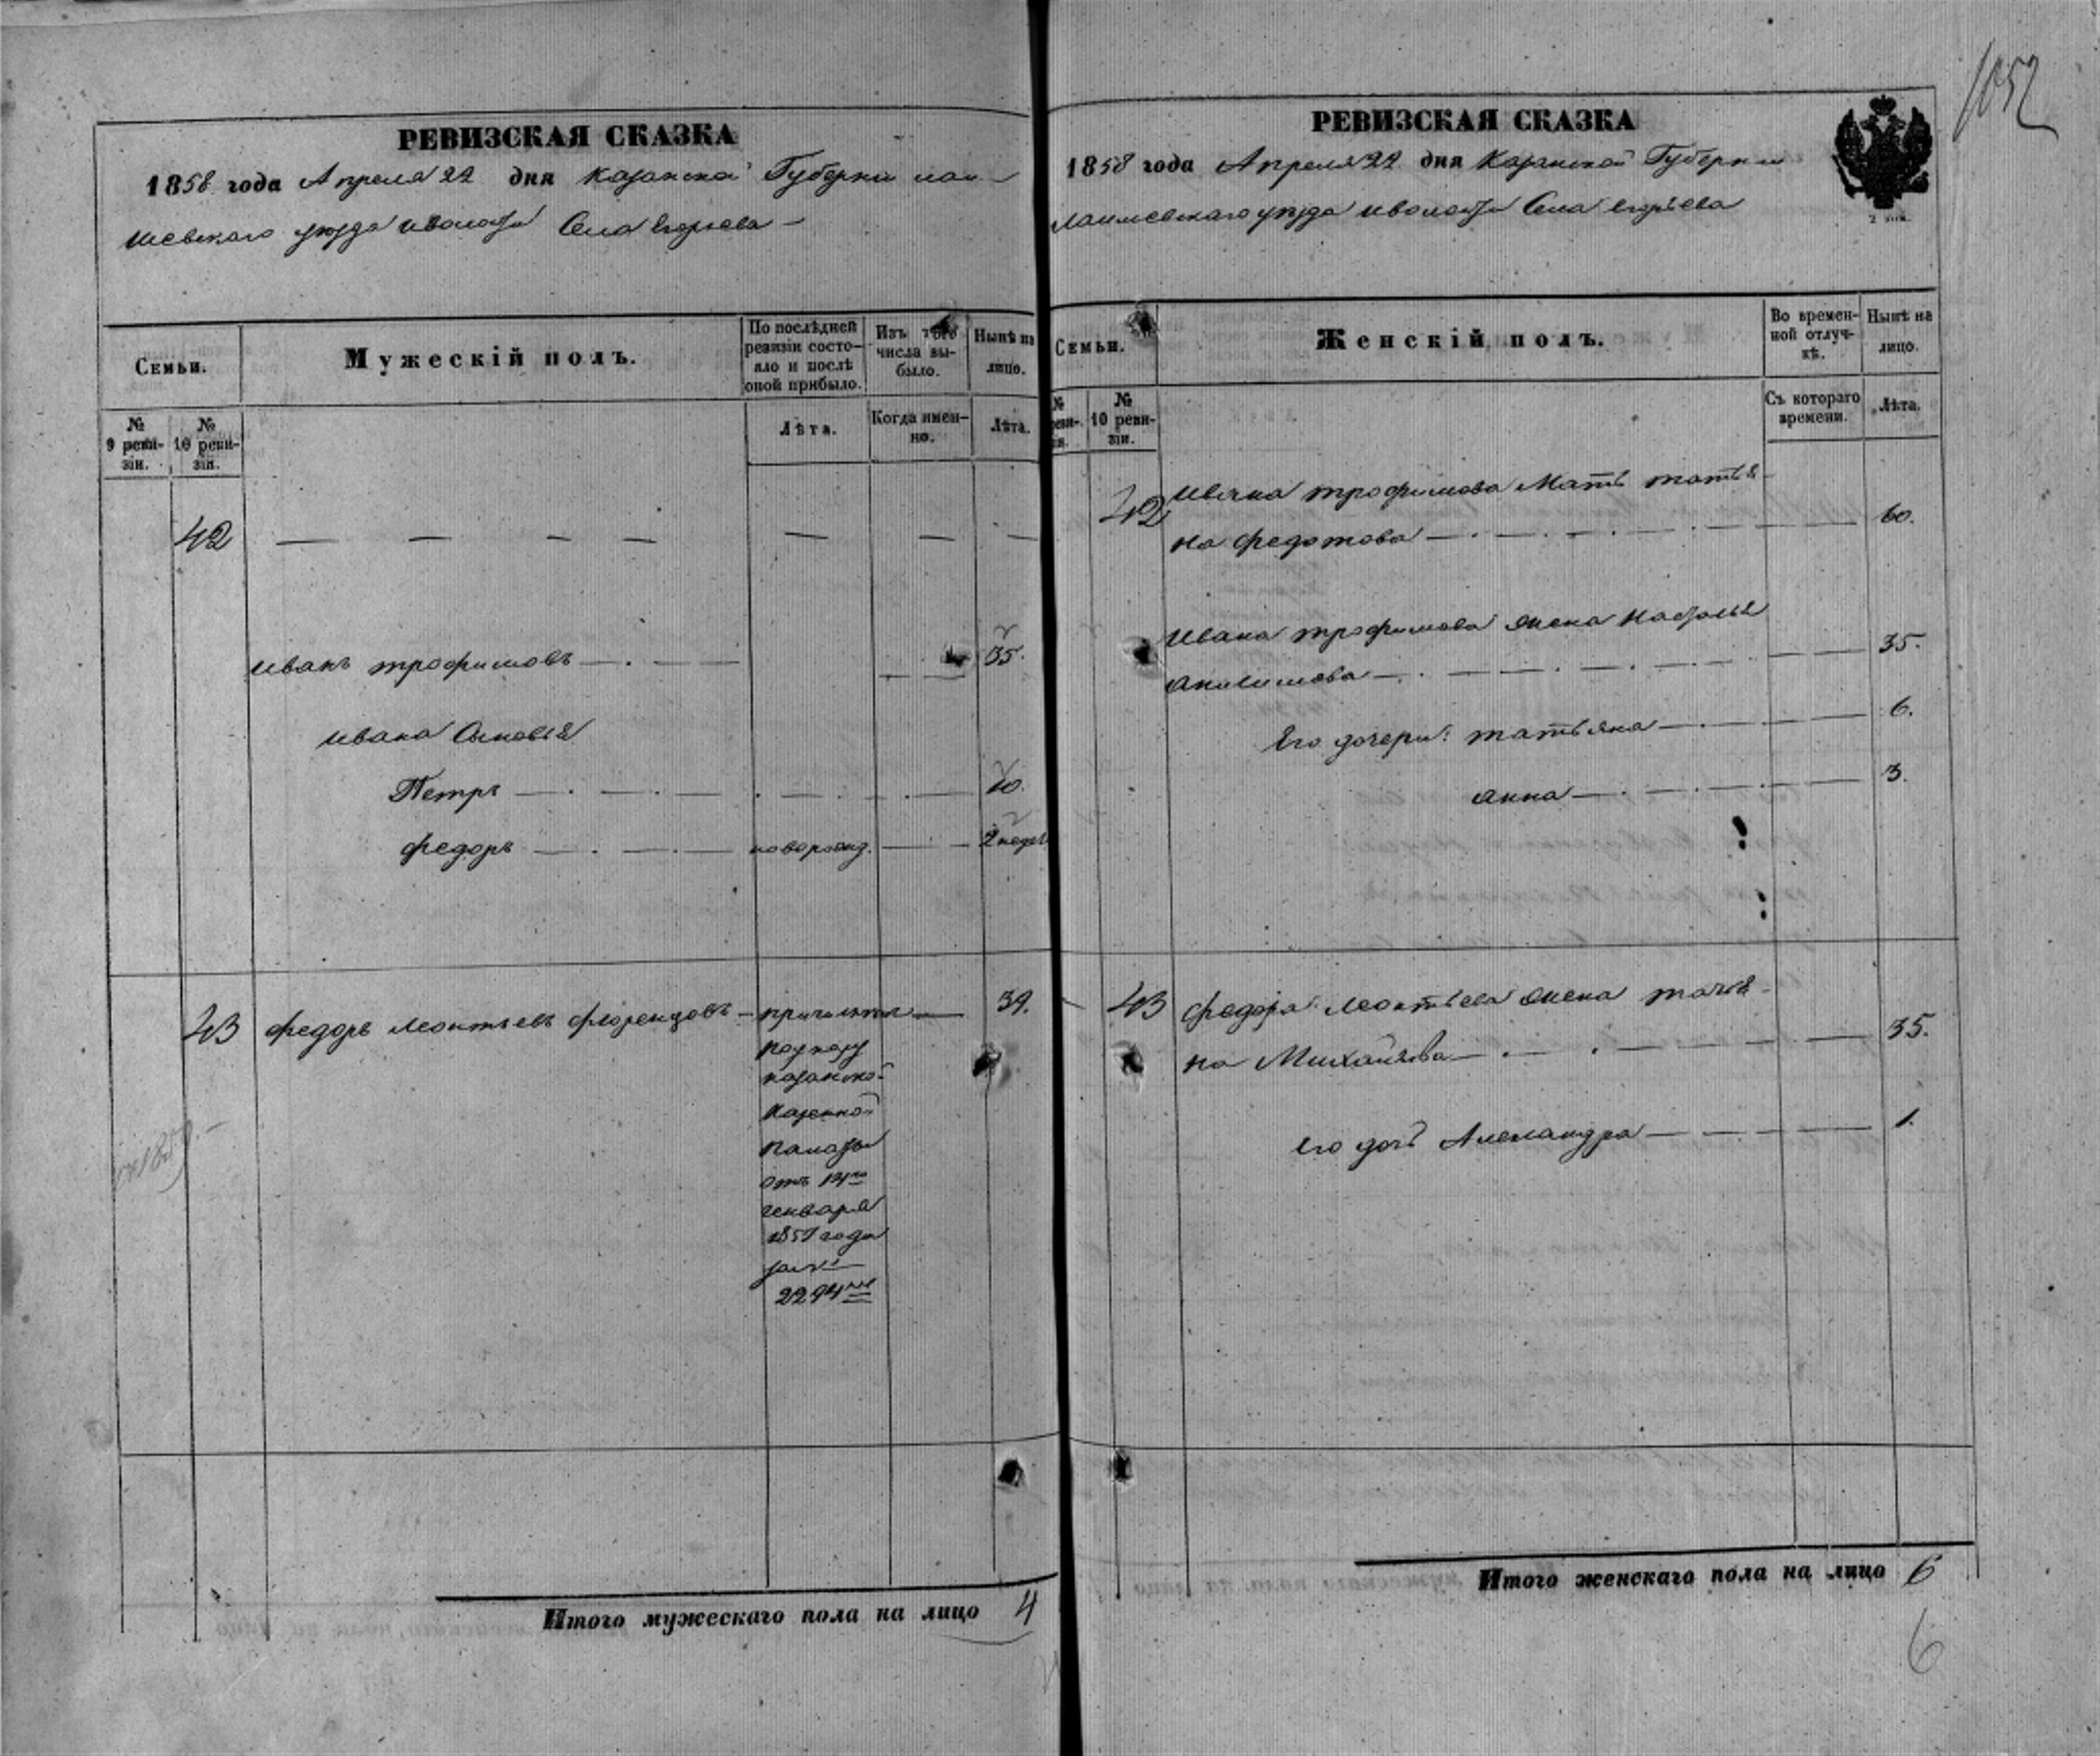 РЕВИЗСКАЯ СКАЗКА
1858 года Апреля 22 дня Казанской Губернии лаи-
шевского уезда и волости Села Егорьева
Семьи.
Мужескій полъ.
По послѣдней ревизіи состояло и послѣ оной прибыло.
Изъ того числа выбыло.
Нынѣ на лицо.
№ 9 ревизіи.
№ 10 ревизіи.
Лѣта.
Когда именно.
Лѣта.
42
Иванъ трофимовъ 35.
Ивана Сыновья
Петръ 10.
Федоръ новорожд. 2 недел
43 Федоръ Леонтьевъ Флоренцовъ причислен 39.
по указу
казанской
Казенной
палаты
отъ 14го
генваря
185 года
за №
2294
Итого мужескаго пола на лицо 4
1052
РЕВИЗСКАЯ СКАЗКА
1858 года Апреля 22 дня Казанской Губернии
Лаишевскаго уезда и волости Села Егорьева
Семьи.
Женскій полъ.
Во временной отлучкѣ.
Нынѣ на лицо.
№ ревизіи.
№ 10 ревизіи.
Съ котораго времени.
Лѣта.
42 Ивана трофимова Мать татья-
на федотова 60.
Ивана трофимова жена Наталья
35.
Его дочери: татьяна 6.
анна 3.
43 федора Леонтьева жена татья-
на Михайлова 35.
его дочь Александра 1.
Итого женскаго пола на лицо 6
6